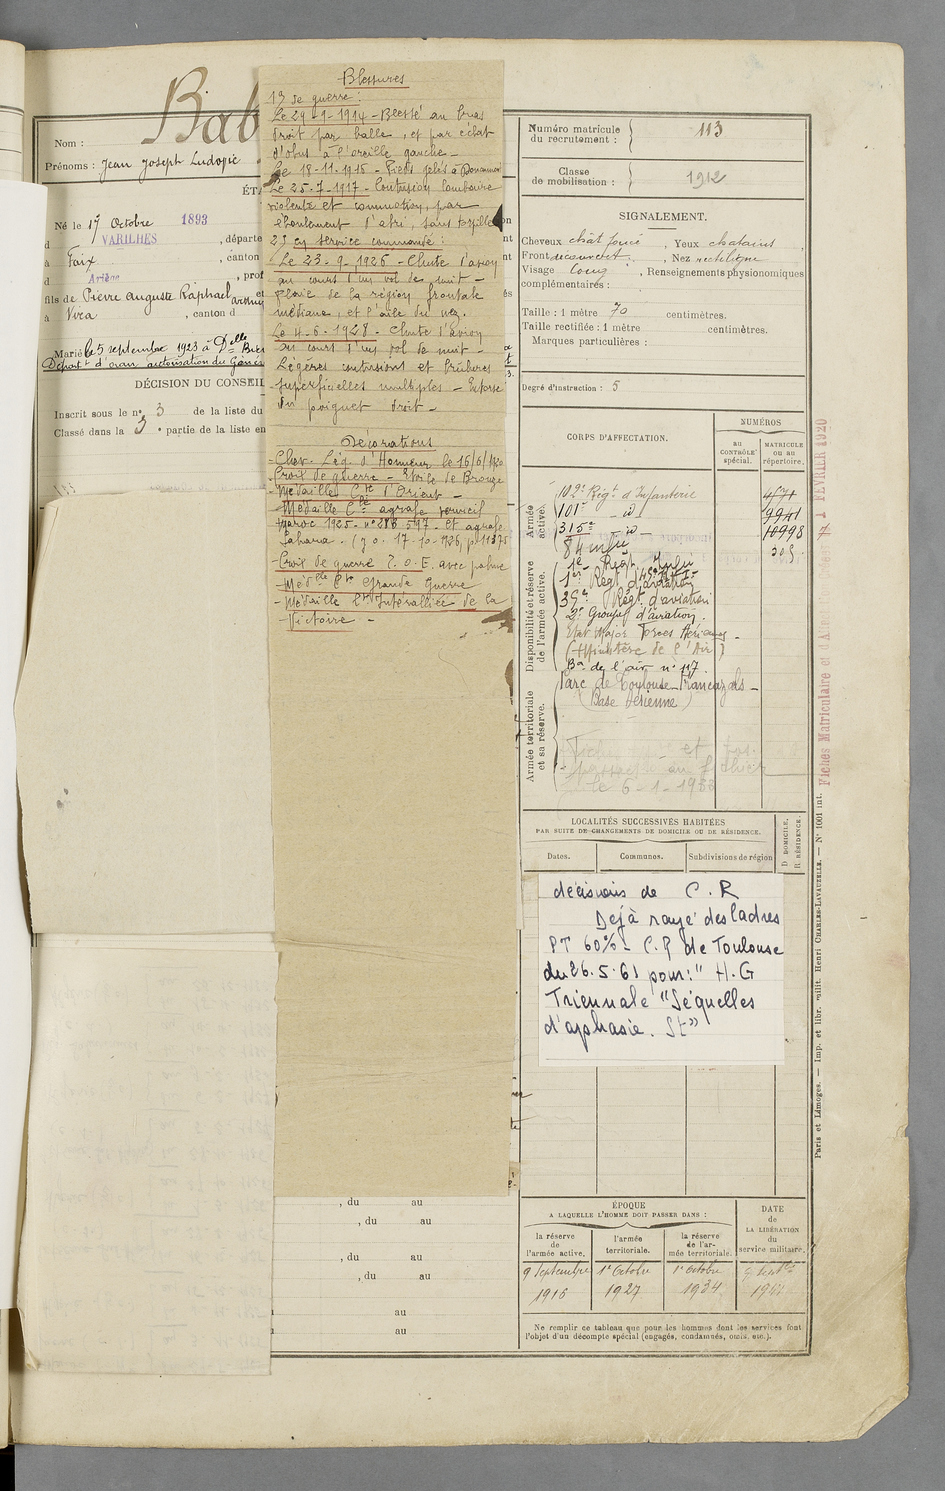 Nom : Bab
Prénoms : Jean Joseph Ludovic
Né le 17 Octobre 1893
VARILHES , départe
à Foix , canton
d Ariège , prof
fils de Pierre Auguste Raphael
à Vira , canton d
Marié le 5 septembre 1923 à Delle
DÉCISION DU CONSEIL
Inscrit sous le n° 3 de la liste du
Classé dans la 3e partie de la liste en
Blessures
1) de guerre :
Le 29-9-1914 - Blessé au bras
droit par balle, et par éclat
d'obus à l'oreille gauche -
Le 18-11-1915 - Pieds gelés à
Le 25-7-1917 - Contusion lombaire
violente et commotion, par
éboulement d'abri, sans
2) en service commandé :
Le 23-9-1926 - Chute d'avion
au cours d'un vol de nuit -
plaie de la région frontale
médiane, et l'aile du nez.
Le 4-6-1928 - Chute d'avion
au cours d'un vol de nuit -
Légères contusions et brûlures
superficielles multiples - Entorse
du poignet droit -
Décorations
- Chev. Lég. d'Honneur le 16/6/1920
Croix de guerre - Etoile de Bronze
- Médaille Cte d'Orient -
- Médaille Cle agrafe vermeil
Maroc 1925 - n° 288.597 - et agrafe
Sahara - (J.O. 17-10-1926, p. 11375
- Croix de guerre T.O.E. avec palme
- Médlle Cte Grande Guerre
- Médaille Cte Interalliée de la
Victoire -
, du au
, du au
, du au
, du au
au
au
Numéro matricule du recrutement : 113
Classe de mobilisation : 1912
SIGNALEMENT.
Cheveux chât foncé , Yeux chatains
Front découvert , Nez rectiligne
Visage long , Renseignements physionomiques
complémentaires :
Taille : 1 mètre 70 centimètres.
Taille rectifiée : 1 mètre centimètres.
Marques particulières :
Degré d'instruction : 5
CORPS D'AFFECTATION.
NUMÉROS
AU CONTRÔLE SPÉCIAL.
MATRICULE OU AU RÉPERTOIRE.
Armée active.
102e Régt d'Infanterie
101e - id - 9941
315e - id - 10998
Disponibilité et réserve de l'armée active.
1er Régt d'aviation
35e Régt d'aviation
2e Groupe d'aviation.
Etat Major Forces Aériennes -
(Ministère de l'Air)
Bon de l'air n° 117.
Armée territoriale et sa réserve.
Parc de Toulouse-Francazals -
(Base Aérienne)
le 6-1-1933
Fiches Matriculaire et
1 FEVRIER 1920
LOCALITÉS SUCCESSIVES HABITÉES
PAR SUITE DE CHANGEMENTS DE DOMICILE OU DE RÉSIDENCE.
Dates. Communes. Subdivisions de région
D. DOMICILE. R. RÉSIDENCE.
décisions de C.R
Déjà rayé des Cadres
PT 60% - C.R de Toulouse
du 26.5.61 pour : " H.G
Triennale "Séquelles
d'aphasie. St"
ÉPOQUE
A LAQUELLE L'HOMME DOIT PASSER DANS :
DATE de LA LIBÉRATION du service militaire.
la réserve de l'armée active. l'armée territoriale. la réserve de l'armée territoriale.
9 Septembre 1916
1er Octobre 1927
1er Octobre 1934
Ne remplir ce tableau que pour les hommes dont les services font
l'objet d'un décompte spécial (engagés, condamnés, omis, etc.).
Paris et Limoges. — Imp. et libr. milit. Henri CHARLES-LAVAUZELLE. — N° 1001 int.